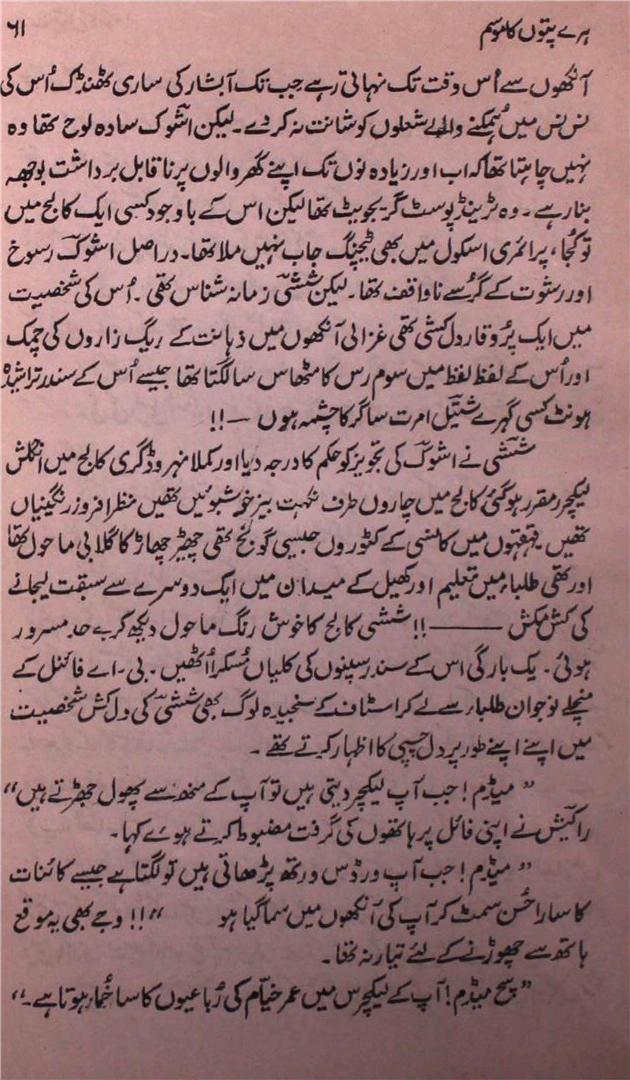 ہرے پتوں کا موسم
۶۱
آنکھوں سے اُس وقت تک نہاتی رہے جب تک آبشار کی ساری ٹھنڈک اُس کی
نس نس میں ہُمکنے والے شعلوں کو شانت نہ کر دے۔ لیکن اشوک سادہ لوح تھا وہ
نہیں چاہتا تھا کہ اب اور زیادہ دنوں تک اپنے گھر والوں پر ناقابل برداشت بوجھ
بنا رہے۔ وہ ٹرینڈ پوسٹ گریجویٹ تھا لیکن اس کے باوجود کسی ایک کالج میں
تو کُجا، پرائمری اسکول میں بھی ٹیچنگ جاب نہیں ملا تھا۔ دراصل اشوک رسوخ
اور رشوت کے گُر سے ناواقف تھا۔ لیکن ششی زمانہ شناس تھی۔ اُس کی شخصیت
میں ایک پُروقار دل کشی تھی غزالی آنکھوں میں ذہانت کے ریگ زاروں کی چمک
اور اُس کے لفظ لفظ میں سوم رس کا مٹھاس سا لگتا تھا جیسے اُس کے سندر تراشیدہ
ہونٹ کسی گہرے شیتل امرت ساگر کا چشمہ ہوں —!!
ششی نے اشوک کی تجویز کو حکم کا درجہ دیا اور کملا نہرو ڈگری کالج میں انگلش
لیکچرر مقرر ہو گئی کالج میں چاروں طرف نکہت بیز خوشبوئیں تھیں منظر افروز رنگینیاں
تھیں قہقہوں میں کانسی کے کٹوروں جیسی گونج تھی چھیڑ چھاڑ کا گلابی ماحول تھا
اور تھی طلباء میں تعلیم اور کھیل کے میدان میں ایک دوسرے سے سبقت لیجانے
کی کش مکش ———!! ششی کالج کا خوش رنگ ماحول دیکھ کر بے حد مسرور
ہوئی۔ یک بارگی اس کے سندر سپنوں کی کلیاں مُسکرا اُٹھیں۔ بی۔ اے فائنل کے
منچلے نوجوان طلباء سے لے کر اسٹاف کے سنجیدہ لوگ بھی ششی کی دل کش شخصیت
میں اپنے اپنے طور پر دل چسپی کا اظہار کرتے تھے۔
”میڈم! جب آپ لیکچر دیتی ہیں تو آپ کے منھ سے پھول جھڑتے ہیں“
راکیش نے اپنی فائل پر ہاتھوں کی گرفت مضبوط کرتے ہوئے کہا۔
”میڈم! جب آپ ورڈس ورتھ پڑھاتی ہیں تو لگتا ہے جیسے کائنات
کا سارا حُسن سمٹ کر آپ کی آنکھوں میں سما گیا ہو “!! وجے بھی یہ موقع
ہاتھ سے چھوڑنے کے لئے تیار نہ تھا۔
”سچ میڈم! آپ کے لیکچرس میں عمر خیام کی رُباعیوں کا سا خُمار ہوتا ہے۔“